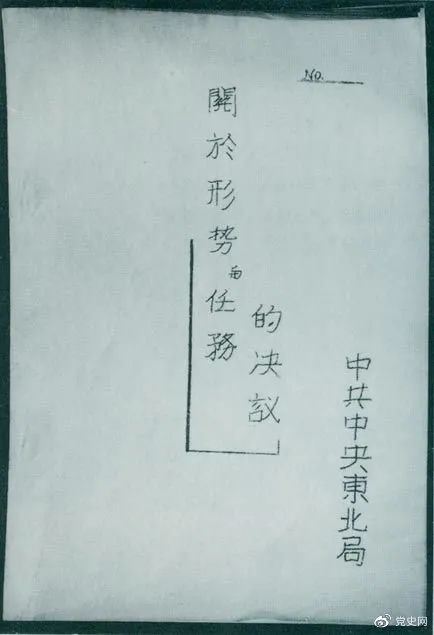 No.
關於形势与任務
的决議
中共中央東北局
党史网